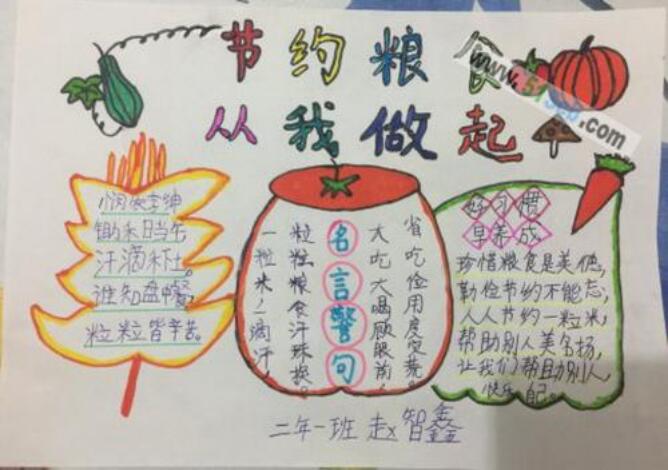 节约粮食
从我做起
锄禾日当午
汗滴禾下土。
谁知盘中餐,
粒粒皆辛苦。
名言警句
一粒米,一滴汗,
粒粒粮食汗珠换。
大吃大喝顾眼前,
省吃俭用度灾荒。
好习惯
早养成
珍惜粮食是美德,
勤俭节约不能忘,
人人节约一粒米,
帮助别人美名扬,
让我们帮助别人,
快乐自己。
二年一班 赵智鑫